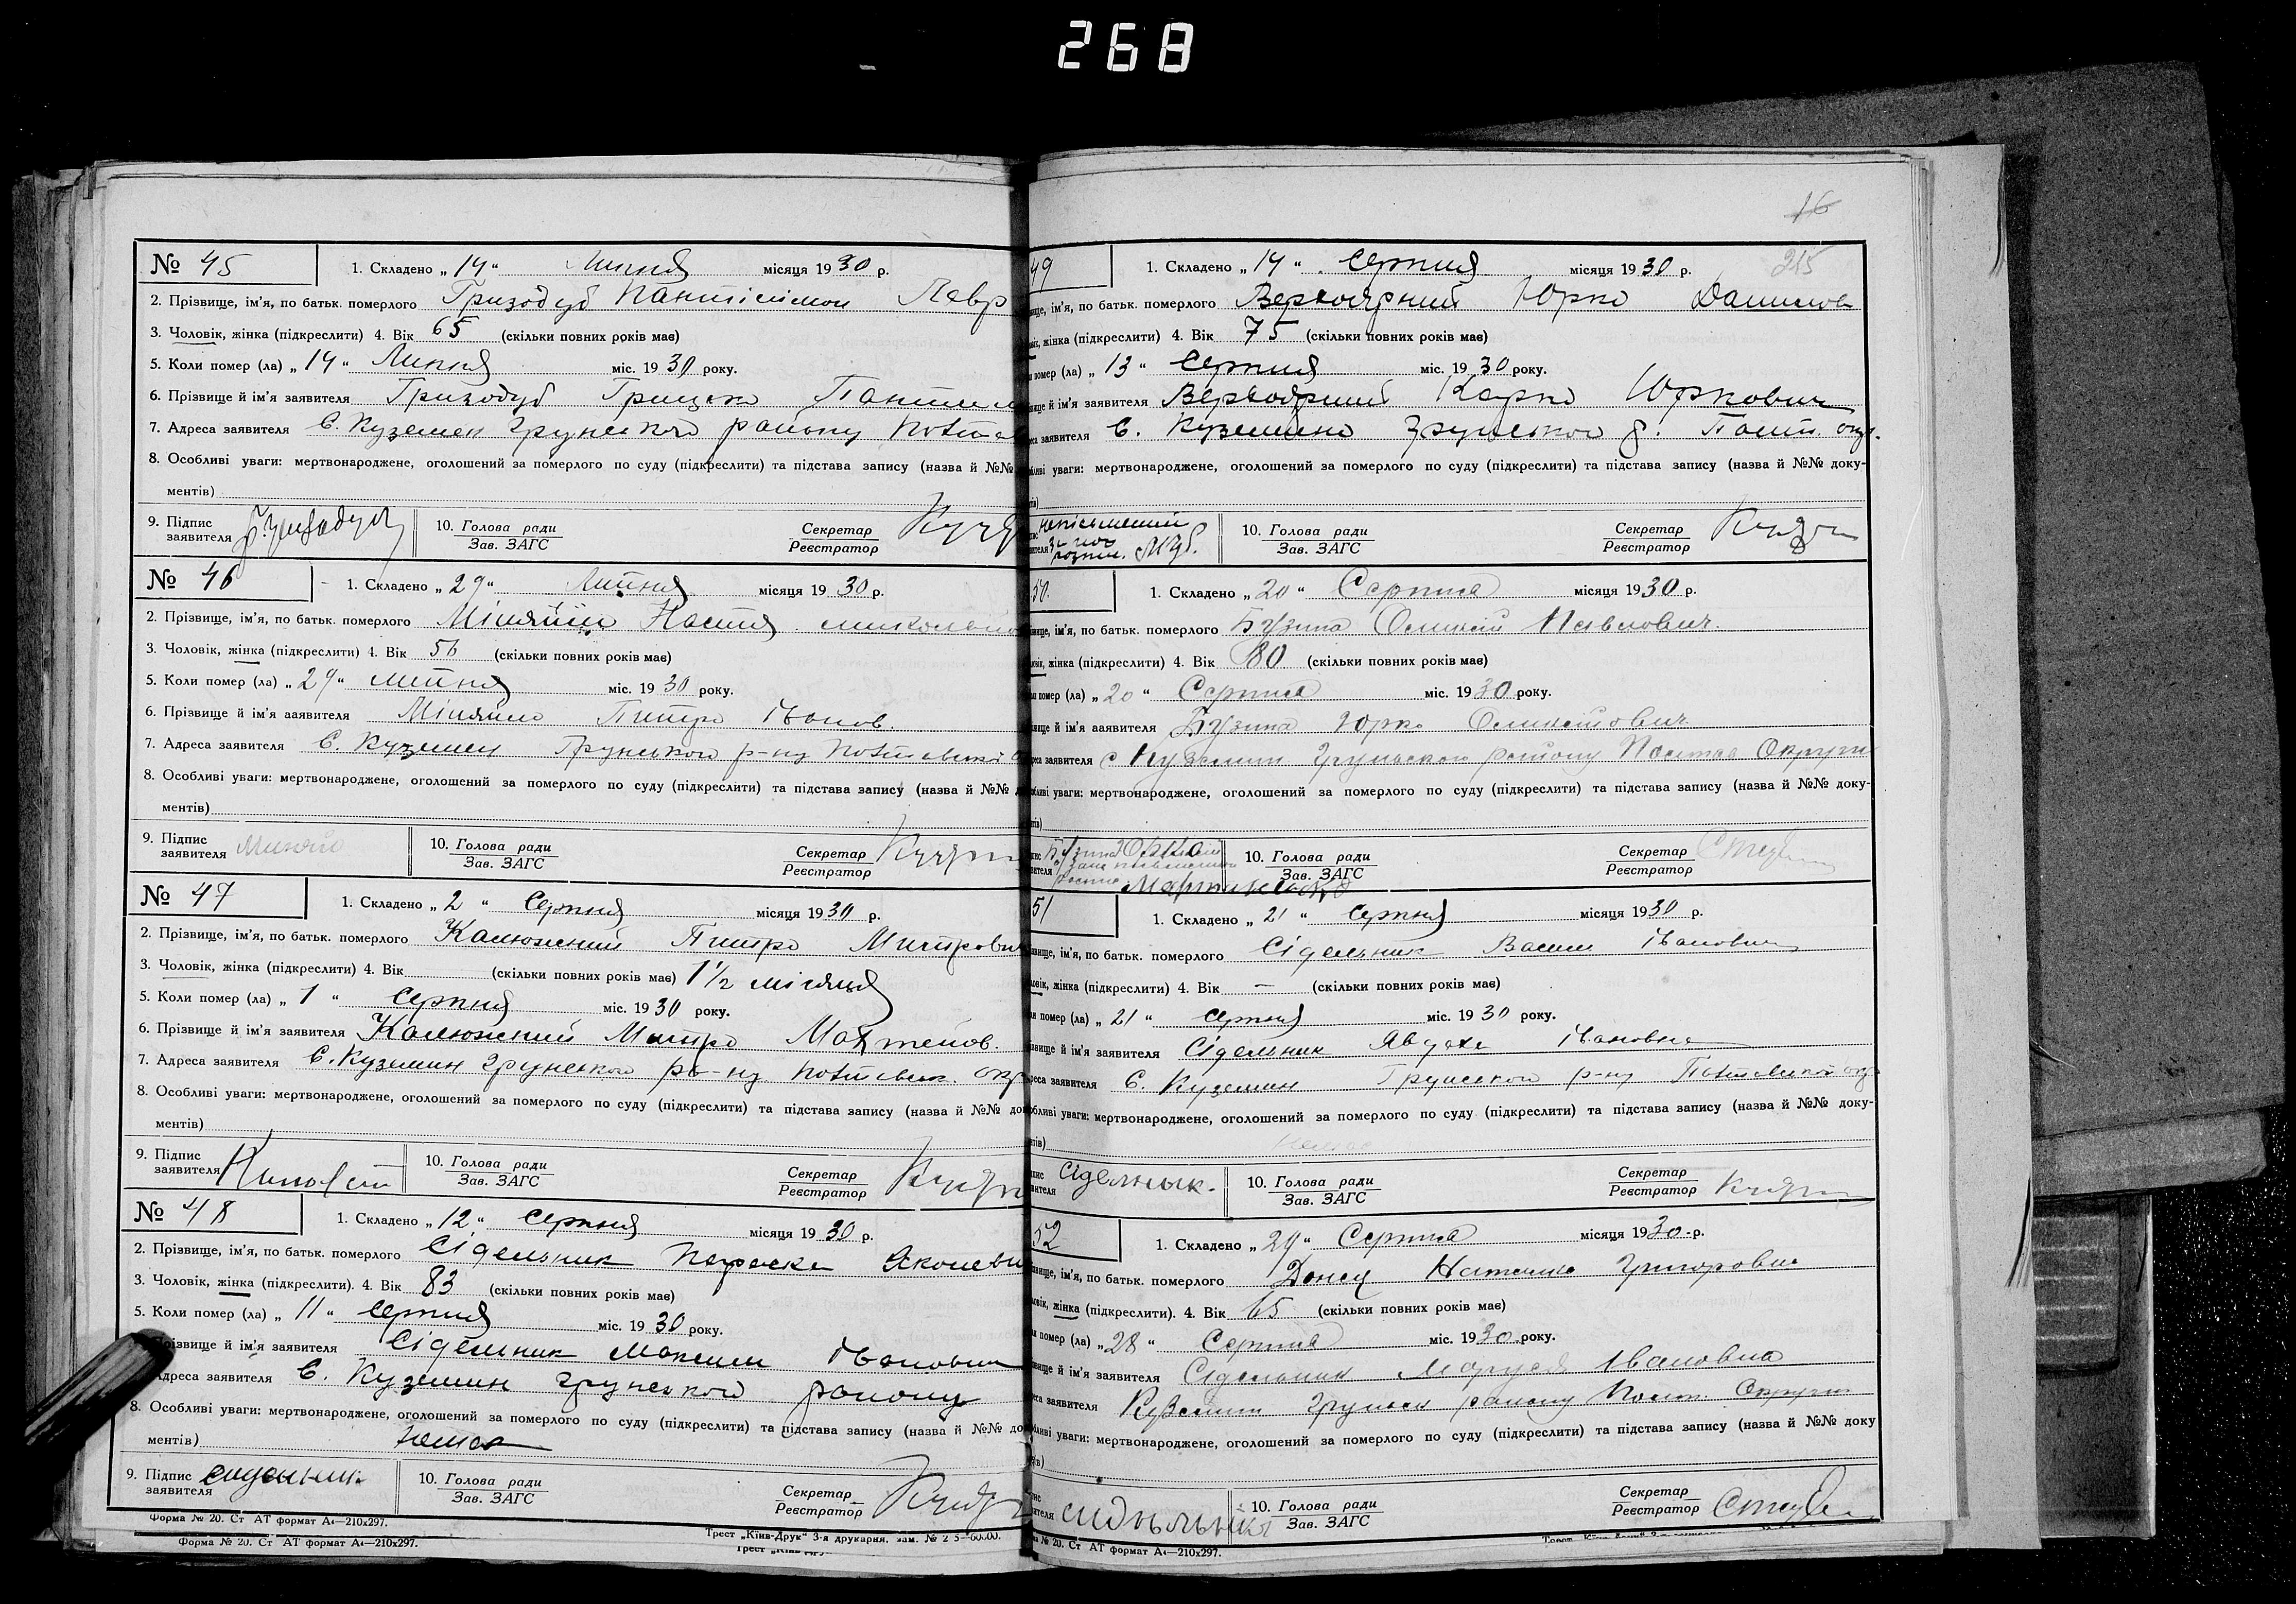 268
№ 45
1. Складено „ 14 “ Липня місяця 1930 р.
2. Прізвище, ім'я, по батьк. померлого Гризодуб Пантілімон Лавр
3. Чоловік, жінка (підкреслити) 4. Вік 65 (скільки повних років має)
5. Коли помер (ла) „ 14 “ Липня міс. 1930 року.
6. Прізвище й ім'я заявителя Гризодуб Грицько
7. Адреса заявителя С. Куземен Грунського району Полта
8. Особливі уваги: мертвонароджене, оголошений за померлого по суду (підкреслити) та підстава запису (назва й №№
ментів)
9. Підпис заявителя
10. Голова ради
Зав. ЗАГС
Секретар
Реєстратор
№ 46
1. Складено „ 29 “ Липня місяця 1930 р.
2. Прізвище, ім'я, по батьк. померлого Міняйло Настя
3. Чоловік, жінка (підкреслити) 4. Вік 56 (скільки повних років має)
5. Коли помер (ла) „ 29 “ липня міс. 1930 року.
6. Прізвище й ім'я аявителя Міняйло Питро Іванов.
7. Адреса заявителя С. Куземен Грунського р-ну
8. Особливі уваги: мертвонароджене, оголошений за померлого по суду (підкреслити) та підстава запису (назва й №№
ментів)
9. Підпис заявителя
10. Голова ради
Зав. ЗАГС
Секретар
Реєстратор
№ 47
1. Складено „ 2 “ Серпня місяця 1930 р.
2. Прізвище, ім'я, по батьк. померлого Калюжний Питро Митрович
3. Чоловік, жінка (підкреслити) 4. Вік (скільки повних років має) 1½ місяця
5. Коли помер (ла) „ 1 “ Серпня міс. 1930 року.
6. Прізвище й ім'я заявителя Калюжний Митро
7. Адреса заявителя С. Куземин Грунського р-ну Полтавськ. окр
8. Особливі уваги: мертвонароджене, оголошений за померлого по суду (підкреслити) та підстава запису (назва й №№ до
ментів)
9. Підпис заявителя
10. Голова ради
Зав. ЗАГС
Секретар
Реєстратор
№ 48
1. Складено „ 12 “ Серпня місяця 1930 р.
2. Прізвище, ім'я, по батьк. померлого Сідельник Параска
3. Чоловік, жінка (підкреслити). 4. Вік 83 (скільки повних років має)
5. Коли помер (ла) „ 11 “ Серпня міс. 1930 року.
різвище й ім'я заявителя Сідельник Максим Іванович
дреса заявителя С. Куземин Грунського району
8. Особливі уваги: мертвонароджене, оголошений за померлого по суду (підкреслити) та підстава запису (назва й №№ до
ментів) Немає
9. Підпис заявителя
10. Голова ради
Зав. ЗАГС
Секретар
Реєстратор
Форма № 20. Ст АТ формат А4—210х297.
Форма № 20. Ст АТ формат А4—210х297.
Трест „Київ-Друк“ 3-я друкарня.
16
215
49
1. Складено „ 14 “ Серпня місяця 1930 р.
ище, ім'я, по батьк. померлого Верхоярний Юрко Данилов
жінка (підкреслити) 4. Вік 75 (скільки повних років має)
помер (ла) „ 13 “ Серпня міс. 1930 року.
вище й ім'я заявителя Верхоярний Карпо Юркович
заявителя С. Куземино Грунського р. Полт. окр.
уваги: мертвонароджене, оголошений за померлого по суду (підкреслити) та підстава запису (назва й №№ доку-
неписьменний
10. Голова ради
Зав. ЗАГС
Секретар
Реєстратор
50
1. Складено „ 20 “ Серпня місяця 1930 р.
ім'я, по батьк. померлого Бузина Олексій Павлович
жінка (підкреслити) 4. Вік 80 (скільки повних років має)
помер (ла) „ 20 “ Серпня міс. 1930 року.
й ім'я заявителя Бузина Юрко Олексійович
заявителя с Куземин Грунського району Полтав Округи
уваги: мертвонароджене, оголошений за померлого по суду (підкреслити) та підстава запису (назва й №№ доку-
10. Голова ради
Зав. ЗАГС
Секретар
Реєстратор
51
1. Складено „ 21 “ Серпня місяця 1930 р.
ім'я, по батьк. померлого Сідельник Василь Іванович
жінка (підкреслити) 4. Вік — (скільки повних років має)
помер (ла) „ 21 “ Серпня міс. 1930 року.
й ім'я заявителя Сідельник Явдоха Івановна
заявителя С. Куземин Грунського р-ну Полтавської окр
уваги: мертвонароджене, оголошений за померлого по суду (підкреслити) та підстава запису (назва й №№ доку-
Немає
Сідельнык.
10. Голова ради
Зав. ЗАГС
Секретар
Реєстратор
52
1. Складено „ 29 “ Серпня місяця 1930 р.
ім'я, по батьк. померлого Донец Наталка Григоровна
жінка (підкреслити). 4. Вік 65 (скільки повних років має)
помер (ла) „ 28 “ Серпня міс. 1930 року.
й ім'я заявителя Сідельник Маруся Івановна
заявителя Куземин Грунськ району Полт. Округи
уваги: мертвонароджене, оголошений за померлого по суду (підкреслити) та підстава запису (назва й №№ доку
10. Голова ради
Зав. ЗАГС
Секретар
Реєстратор
№ 20. Ст АТ формат А4—210х297.